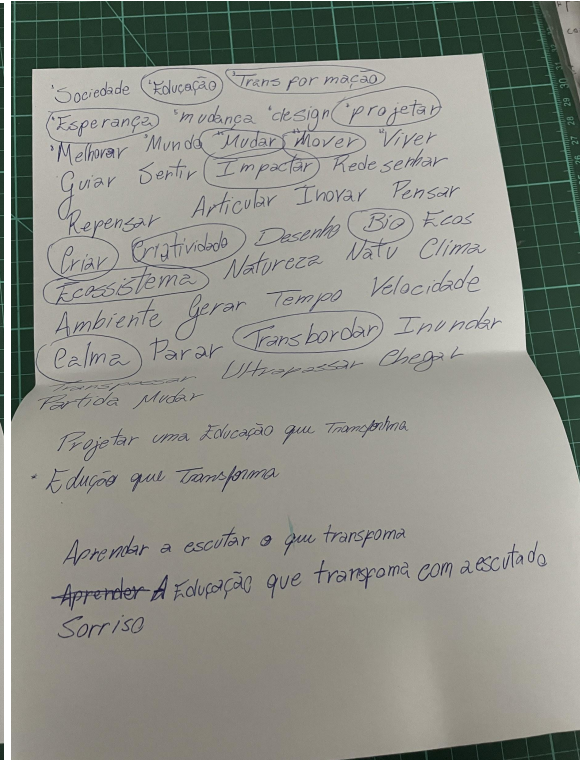 'Sociedade 'Educação 'Transformação
'Esperança 'mudança 'design 'projetar
'Melhorar 'Mundo "Mudar "Mover "Viver
Guiar Sentir Impactar Redesenhar
Repensar Articular Inovar Pensar
Criar Criatividade Desenho Bio Ecos
Ecossistema Natureza Natu Clima
Ambiente Gerar Tempo Velocidade
Calma Parar Transbordar Inundar
Transpassar Ultrapassar Chegar
Partida Mudar
Projetar uma Educação que Transforma
* Edução que Transforma
Aprendar a escutar o que transpoma
Aprender A Educação que transpoma com a escutado
Sorriso